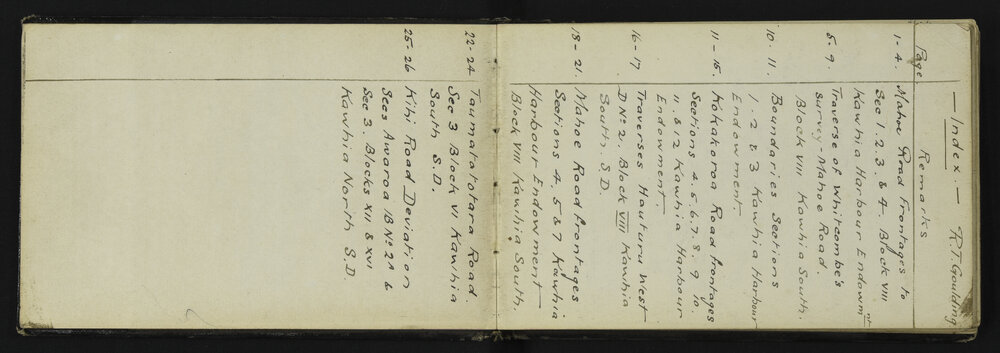 — Index. — R.T. Goulding
Page. Remarks
1-4. Mahoe Road Frontages to
Sec 1. 2. 3. & 4. Block VIII
Kawhia Harbour Endowmnt
5.9. Traverse of Whitcombe's
Survey Mahoe Road.
Block VIII Kawhia South.
10. 11. Boundaries Sections
1. 2 & 3 Kawhia Harbour
Endowment.
11-15. Kokakoroa Road frontages
Sections 4. 5. 6. 7. 8. 9. 10.
11. & 12 Kawhia Harbour
Endowment.
16-17 Traverses Hauturu West
D No 2. Block VIII Kawhia
South. S.D.
18-21. Mahoe Road frontages
Sections 4. 5 & 7 Kawhia
Harbour Endowment
Block VIII Kawhia South.
22-24 Taumatatotara Road
Sec 3 Block VI Kawhia
South S.D.
25-26 Kihi Road Deviation
Secs Awaroa 1B No 2A &
Sec 3. Blocks XII & XVI
Kawhia North S.D